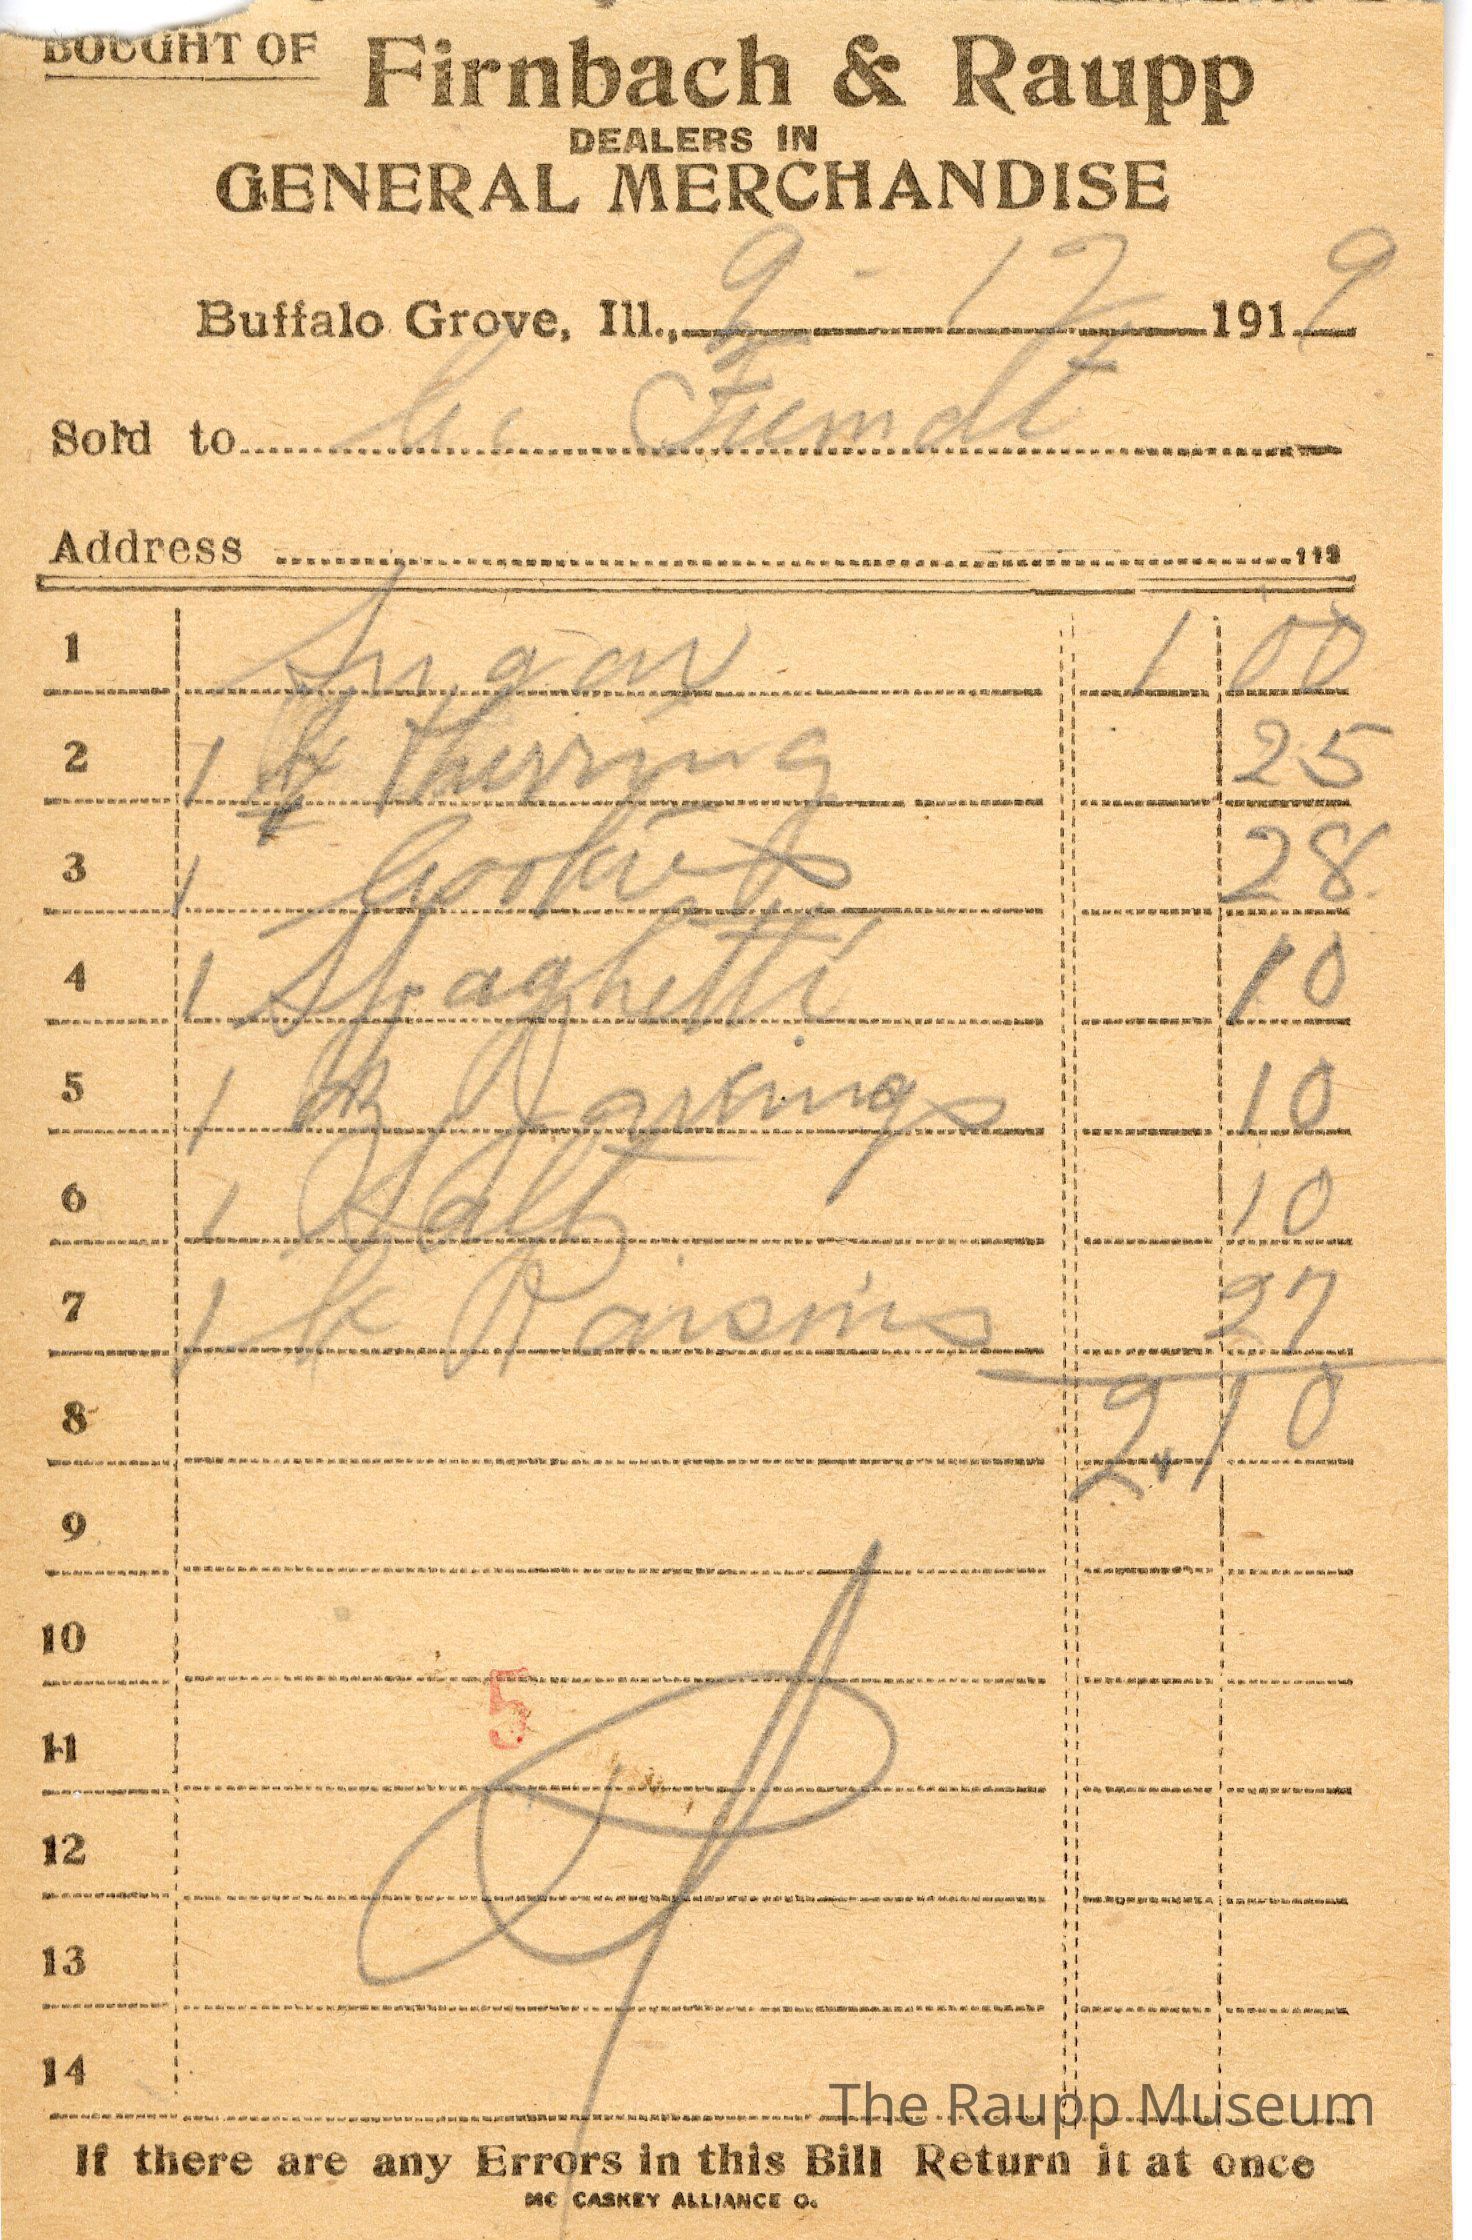 BOUGHT OF Firnbach & Raupp
DEALERS IN
GENERAL MERCHANDISE
Buffalo Grove, Ill., 9 - 17 1919
Sold to
Address 113
1 Sugar 1 00
2 1 # Herring 25
3 1 Cookies 28
4 1 Spaghetti 10
5 1 10
6 1 Salt 10
7 1 # Raisins 27
8 2.10
9
10
5
11
12
13
14
The Raupp Museum
If there are any Errors in this Bill Return it at once
MC CASKEY ALLIANCE O.